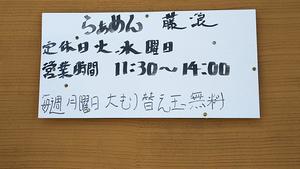 らぁめん 藤浪
定休日 火 水曜日
営業時間 11:30～14:00
毎週月曜日大もり替え玉無料